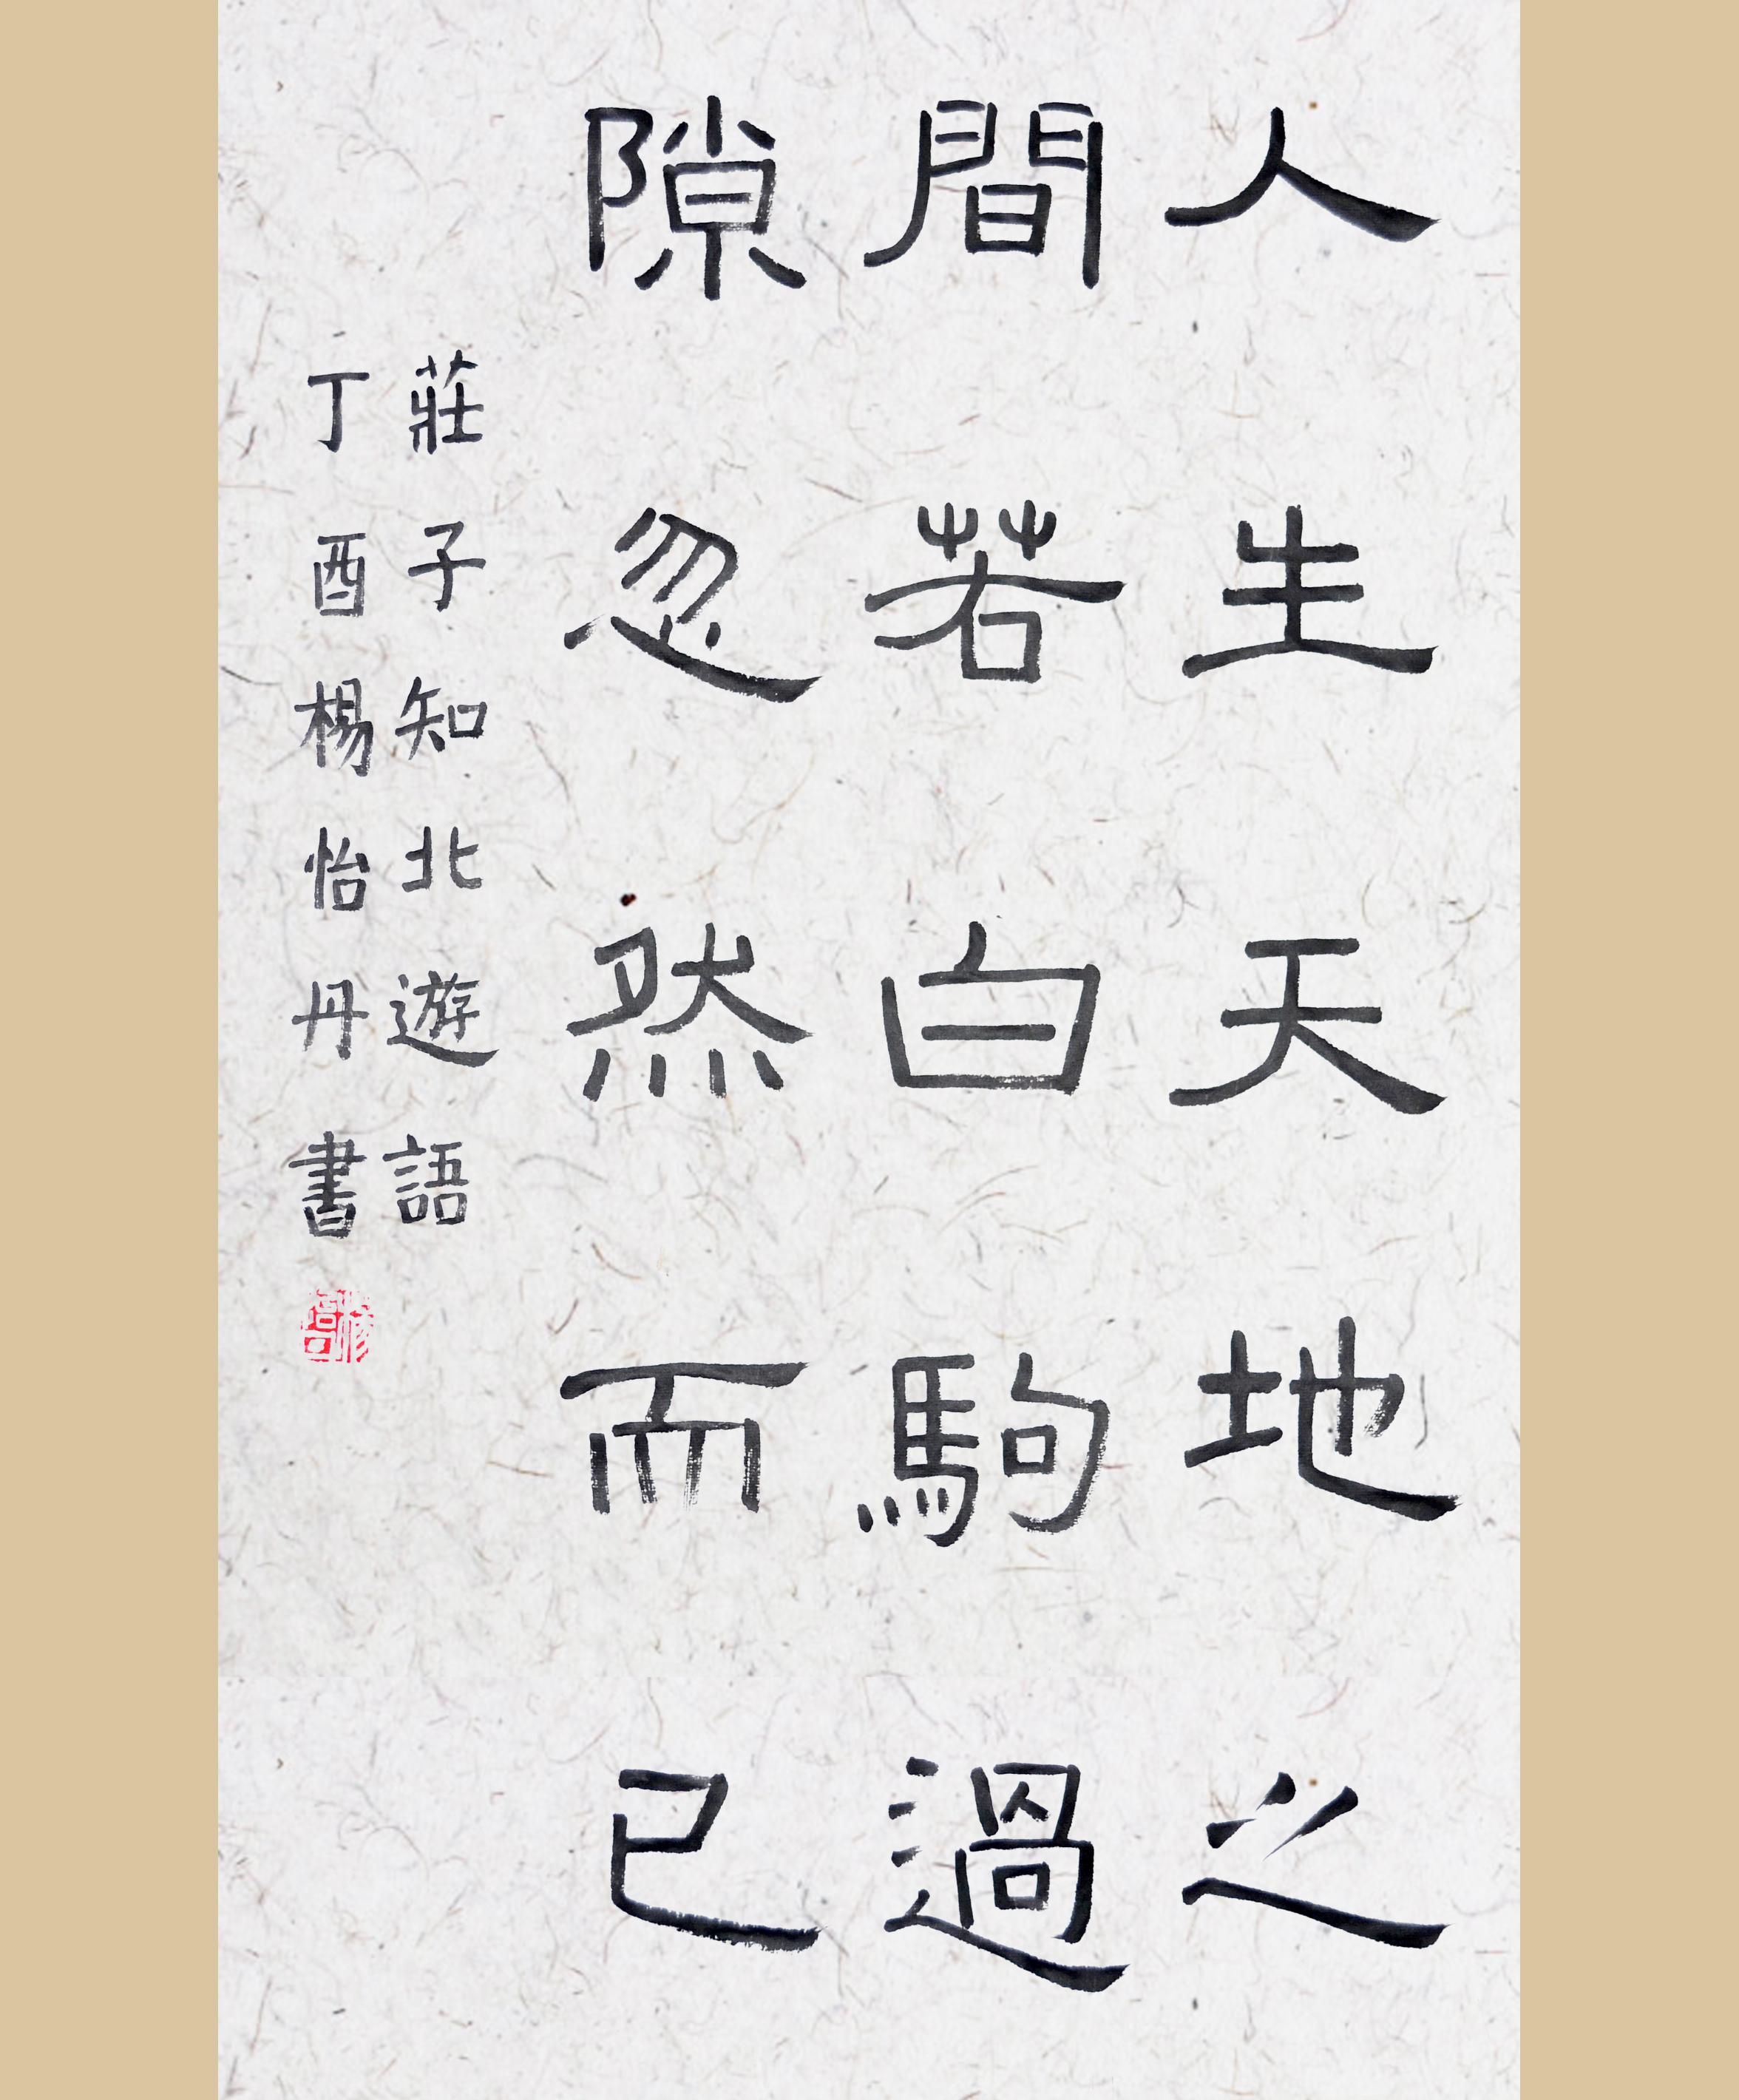 人生天地之
間若白駒過
隙忽然而已
莊子知北遊語
丁酉楊怡丹書